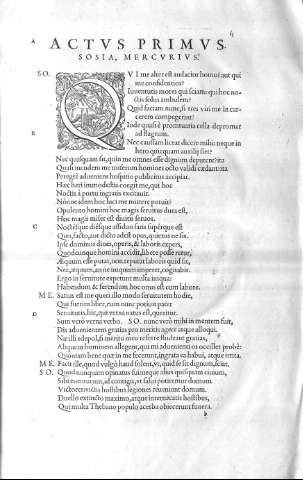 4
A
ACTVS PRIMVS.
SOSIA, MERCVRIVS.
SO. QVI me alter est audacior homo: aut qui
me confidentior?
Iuuentutis mores qui sciam: qui hoc no-
ctis solus ambulem?
Quid faciam nunc, si tres viri me in car-
cerem compegerint?
Inde quasi è promptuaria cella depromar
B
ad flagrum.
Nec causam liceat dicere mihi: neque in
hero quicquam auxilij siet?
Nec quisquam sit, quin me omnes esse dignum deputent: ita
Quasi incudem me miserum homines octo validi cædant: ita
Peregrè adueniens hospitio publicitus accipiar.
Hæc heri immodestia coegit me, qui hoc
Noctis à portu ingratis excitauit.
Nónne idem hoc luci me mittere potuit?
Opulento homini hoc magis seruitus dura est,
Hoc magis miser est diuitis seruus.
C
Noctésque diésque assiduo satis supérque est
Quo, facto, aut dicto adest opus, quietus ne sis.
Ipse dominus diues, operis, & laboris expers,
Quodcunque homini accidit, libere posse retur,
Æquum esse putat, non reputat laboris quid sit,
Nec, æquum, an ne iniquum imperet, cogitabit.
Ergo in seruitute expetunt multa iniqua:
Habendum & ferendum hoc onus est cum labore.
ME. Satius est me queri illo modo seruitutem: hodie,
Qui fuerim liber, eum nunc potiuit pater
D
Seruitutis, hic, qui verna natus est, queritur.
Sum verò verna verbo. SO. nunc verò mihi in mentem fuit,
Dis aduenientem gratias pro meritis agere atque alloqui.
Næ illi edepol, si merito meo referre studeant gratias,
Aliquem hominem allegent, qui mi aduenienti os occillet probè:
Quoniam bene quæ in me fecerunt, ingrata ea habui, atque irrita.
ME. Facit ille, quod vulgò haud solent, vt, quid se sit dignum, sciat.
SO. Quod nunquam opinatus fui: neque alius quisquam ciuium,
Sibi euenturum, id contigit, vt salui potiremur domum.
Victores victis hostibus legiones reueniunt domum.
Duello extincto maximo, atque internecatis hostibus,
Qui multa Thebano populo acerba obiecerunt funera.
b